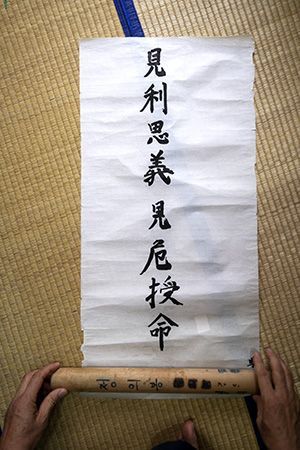 見利思義見危授命